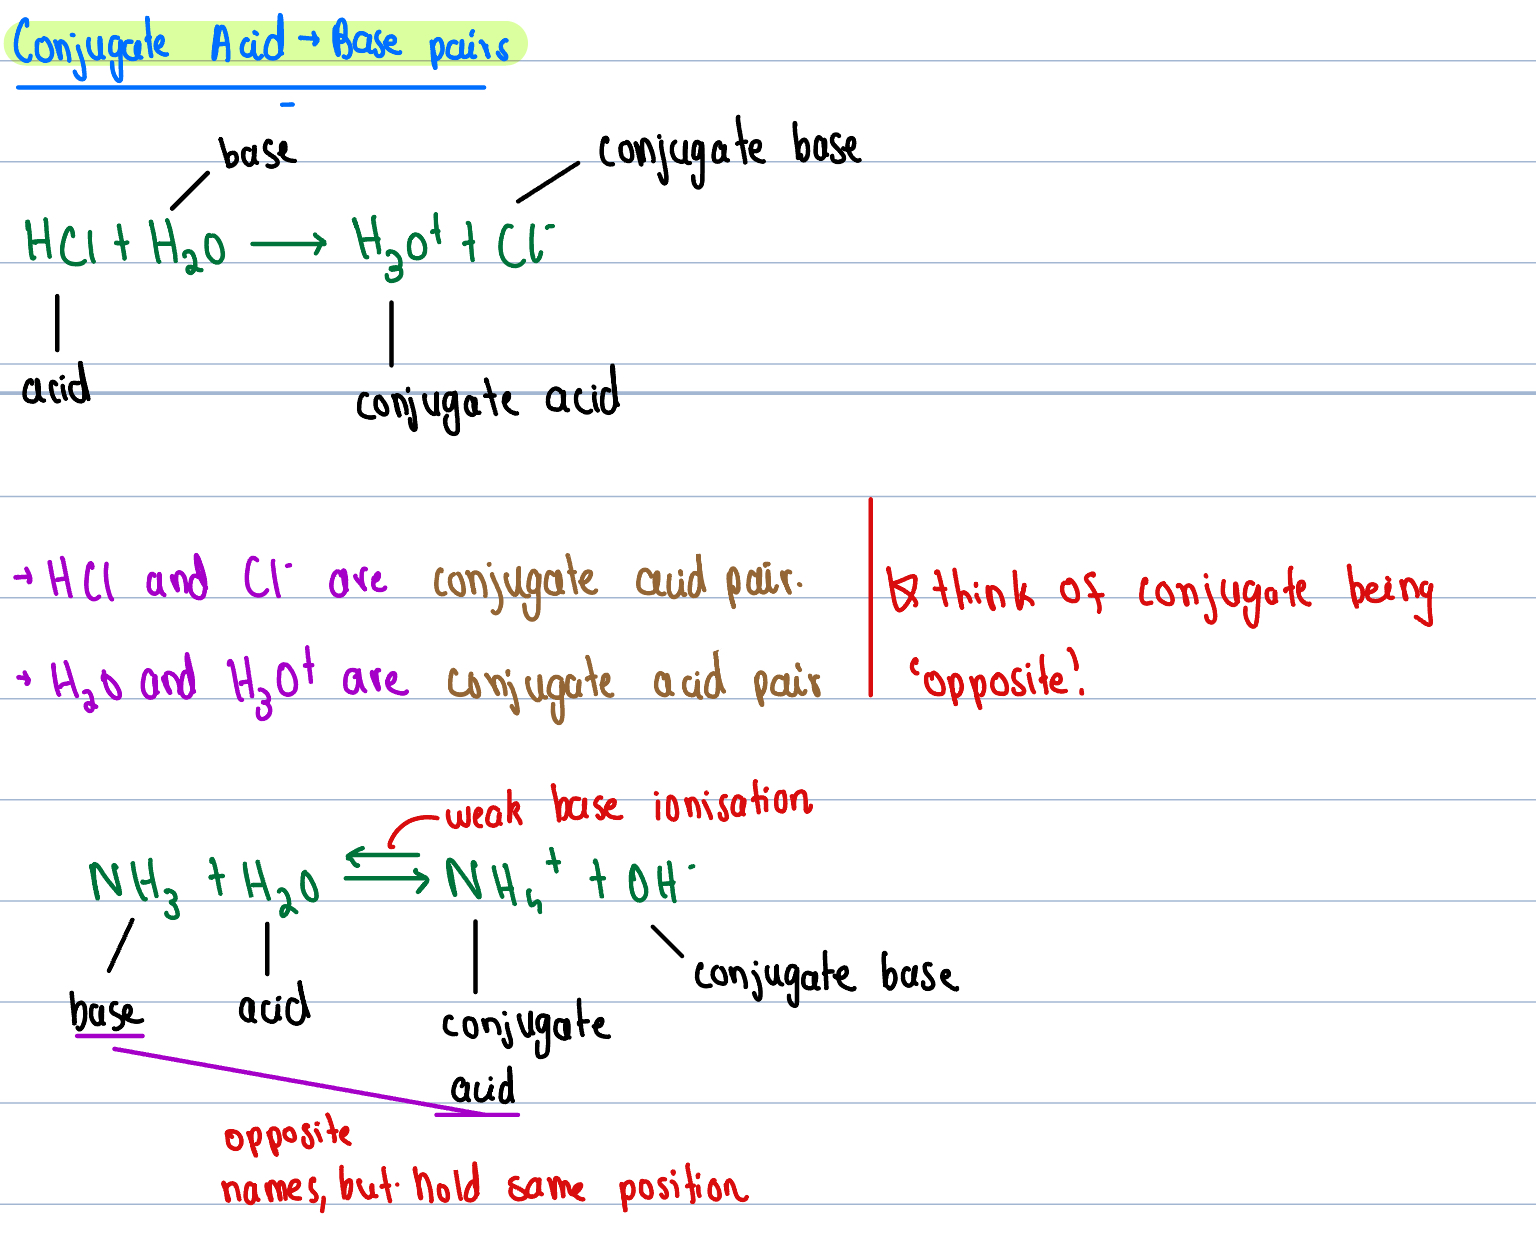 Conjugate Acid → Base pairs
base
conjugate base
HCl + H₂O ⟶ H₃O⁺ + Cl⁻
acid
conjugate acid
→ HCl and Cl⁻ are conjugate acid pair.
→ H₂O and H₃O⁺ are conjugate acid pair
think of conjugate being
'opposite'!
weak base ionisation
NH₃ + H₂O ⇌ NH₄⁺ + OH⁻
base
acid
conjugate
acid
conjugate base
opposite
names, but hold same position